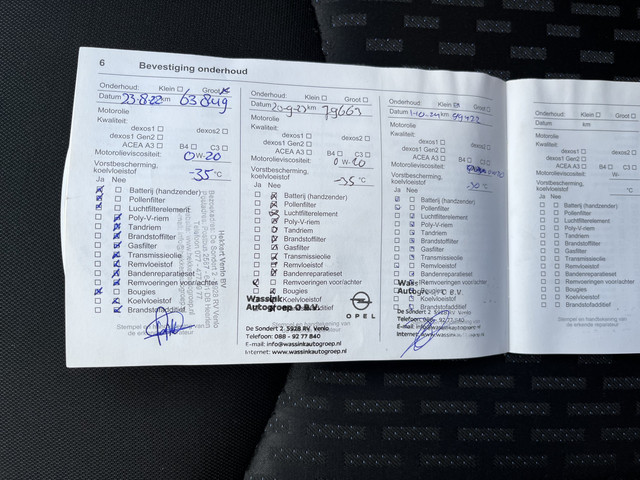 6 Bevestiging onderhoud
Onderhoud: Klein Groot
Datum 23-8-22 km 63849
Motorolie
Kwaliteit:
dexos1 dexos2
dexos1 Gen2
ACEA A3 B4 C3
Motorolieviscositeit: 0 W-20
Vorstbescherming,
koelvloeistof -35 °C
Ja Nee
Batterij (handzender)
Pollenfilter
Luchtfilterelement
Poly-V-riem
Tandriem
Brandstoffilter
Gasfilter
Transmissieolie
Remvloeistof
Bandenreparatieset
Remvoeringen voor/achter
Bougies
Koelvloeistof
Brandstofadditief
Stempel en
de erkende
Onderhoud: Klein Groot
Datum 20-9-23 km 79663
Motorolie
Kwaliteit:
dexos1 dexos2
dexos1 Gen2
ACEA A3 B4 C3
Motorolieviscositeit: 0 W-20
Vorstbescherming,
koelvloeistof -35 °C
Ja Nee
Batterij (handzender)
Pollenfilter
Luchtfilterelement
Poly-V-riem
Tandriem
Brandstoffilter
Gasfilter
Transmissieolie
Remvloeistof
Bandenreparatieset
Remvoeringen voor/achter
Bougies
Koelvloeistof
Wassink
Autogroep O B.V.
OPEL
De Sondert 2 5928 RV. Venlo
Telefoon: 088 - 92 77 840
E-mail: info@wassinkautogroep.nl
Internet: www.wassinkautogroep.nl
Onderhoud: Klein Groot
Datum km
Motorolie
Kwaliteit:
dexos1 dexos2
dexos1 Gen2
ACEA A3 B4 C3
Motorolieviscositeit:
Vorstbescherming,
koelvloeistof °C
Ja Nee
Batterij (handzender)
Pollenfilter
Luchtfilterelement
Poly-V-riem
Tandriem
Brandstoffilter
Gasfilter
Transmissieolie
Remvloeistof
Bandenreparatieset
Remvoeringen voor/achter
Bougies
Koelvloeistof
Brandstofadditief
Onderhoud: Klein Groot
Datum km
Motorolie
Kwaliteit:
dexos1 dexos2
dexos1 Gen2
ACEA A3 B4 C3
Motorolieviscositeit: W-
Vorstbescherming,
koelvloeistof °C
Ja Nee
Batterij (handzender)
Pollenfilter
Luchtfilterelement
Poly-V-riem
Tandriem
Brandstoffilter
Gasfilter
Transmissieolie
Remvloeistof
Bandenreparatieset
Remvoeringen voor/achter
Bougies
Koelvloeistof
Brandstofadditief
Stempel en handtekening van
de erkende reparateur